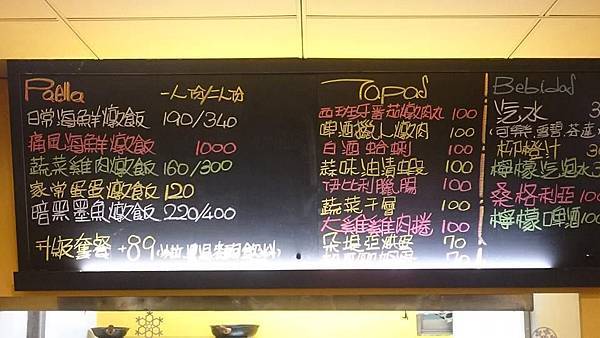 Paella 一人份/二人份
日常海鮮燉飯 190/340
痛風海鮮燉飯 1000
蔬菜雞肉燉飯 160/300
家常蛋蛋燉飯 120
暗黑墨魚燉飯 220/400
升級套餐 +89
Tapas
西班牙番茄燉肉丸 100
啤酒獵人燉肉 100
白酒蛤蜊 100
蒜味油漬蝦 100
伊比利臘腸 100
蔬菜千層 100
大雞雞肉捲 100
70
70
Bebidas
汽水
可樂 雪碧 芬達
柳橙汁
檸檬汽泡水
桑格利亞 100
檸檬啤酒 100